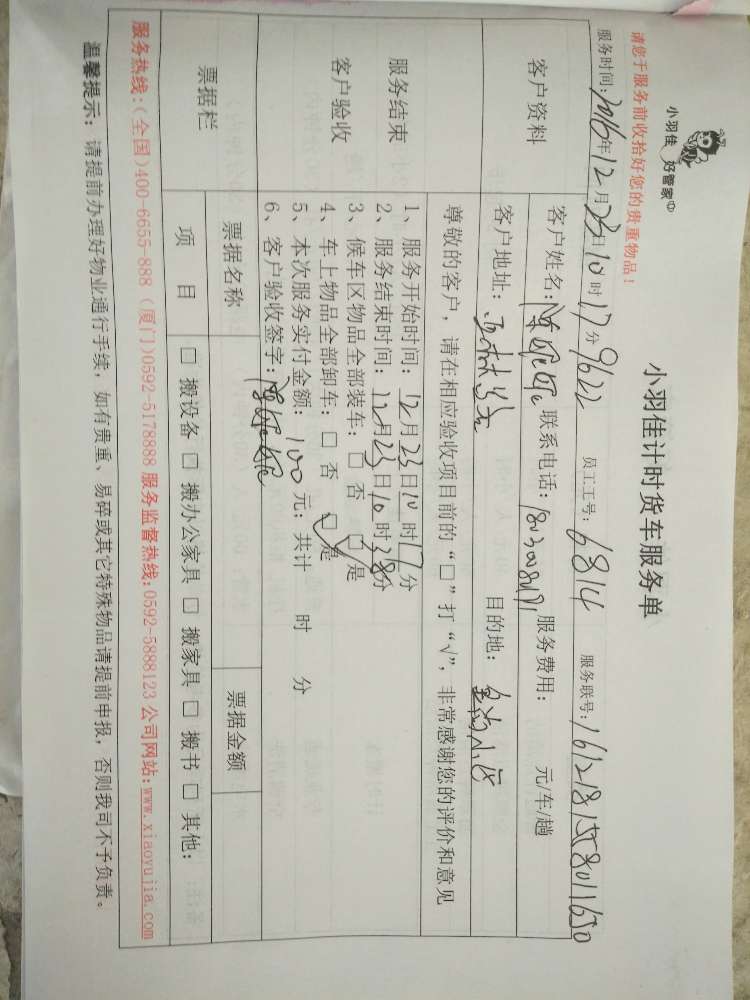 小羽佳 好管家
小羽佳计时货车服务单
请您于服务前收拾好您的贵重物品！
服务时间：2016年12月23日10时17分 9622 员工工号：6814 服务联号：
客户资料
客户姓名：陈 联系电话： 服务费用： 元/车/趟
客户地址： 目的地：金尚小区
尊敬的客户，请在相应验收项目前的“□”打“√”，非常感谢您的评价和意见
服务结束
客户验收
1、服务开始时间：12月23日10时17分
2、服务结束时间：12月23日10时38分
3、候车区物品全部装车：□ 否 □ 是
4、车上物品全部卸车：□ 否 □ 是
5、本次服务实付金额：100元；共计 时 分
6、客户验收签字：陈
票据栏
票据名称 票据金额
项 目 □ 搬设备 □ 搬办公家具 □ 搬家具 □ 搬书 □ 其他：
服务热线：(全国)400-6655-888 (厦门)0592-5178888 服务监督热线：0592-5888123 公司网站：www.xiaoyujia.com
温馨提示：请提前办理好物业通行手续，如有贵重、易碎或其它特殊物品请提前申报，否则我司不予负责。